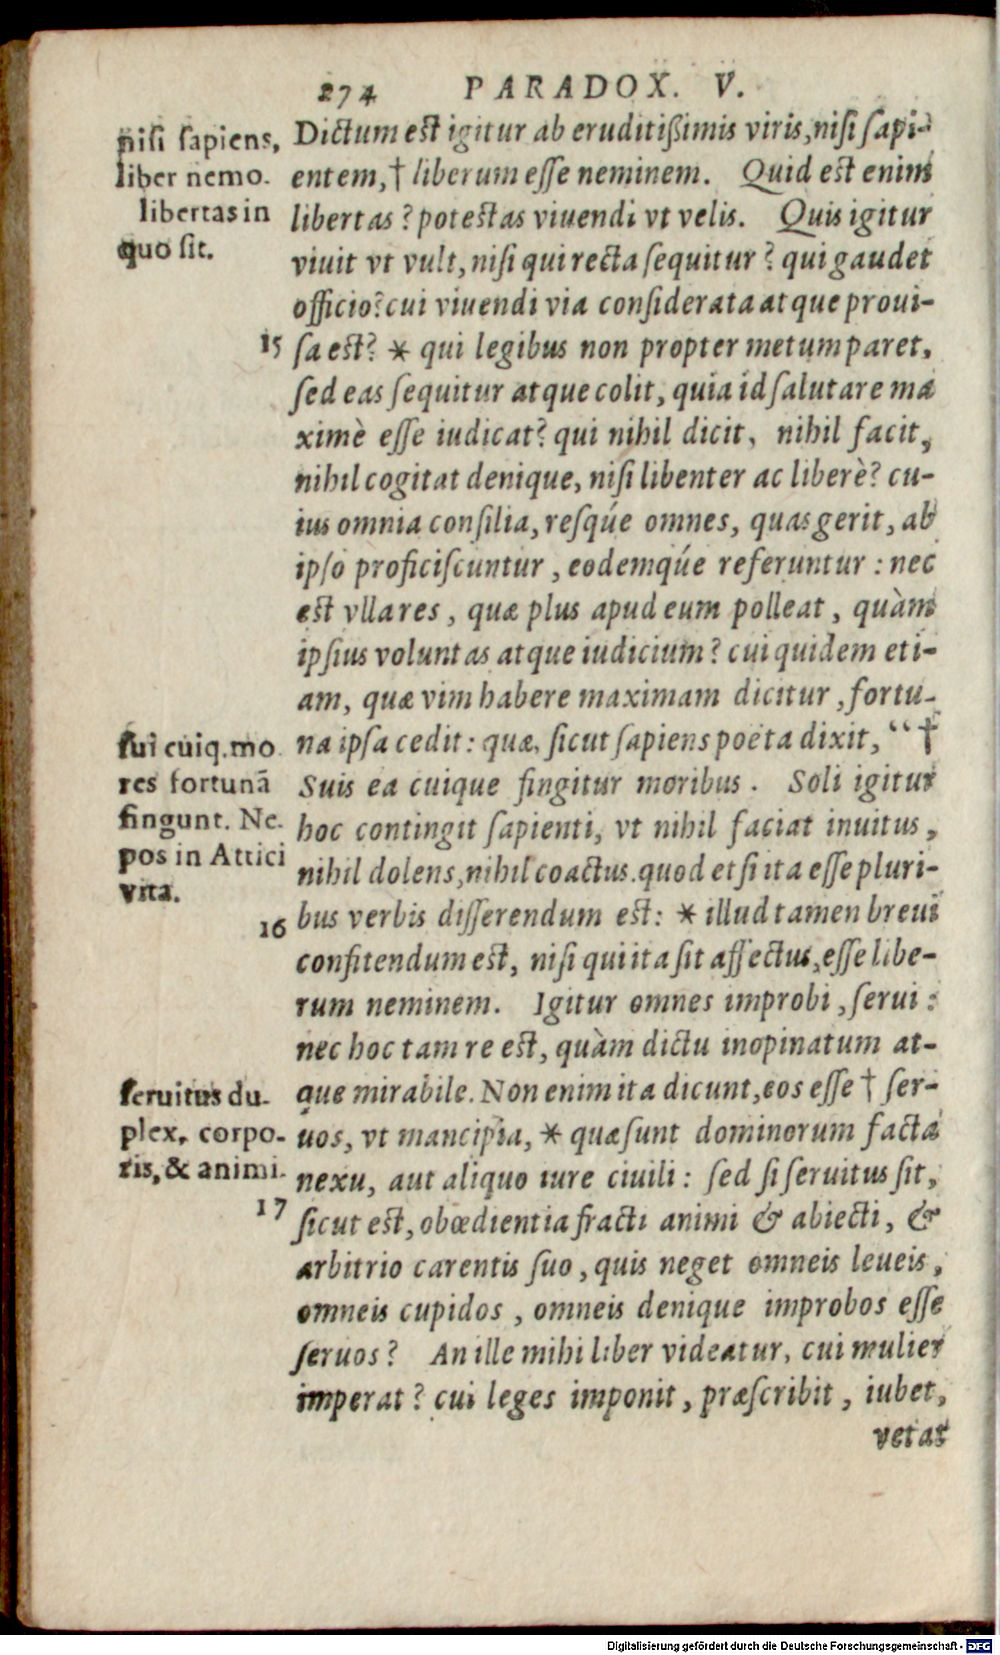 274 PARADOX. V.
nisi sapiens,
liber nemo.
libertas in
quo sit.
Dictum est igitur ab eruditißimis viris, nisi sapi-
entem, † liberum esse neminem. Quid est enim
libertas? potestas viuendi vt velis. Quis igitur
viuit vt vult, nisi qui recta sequitur? qui gaudet
officio? cui viuendi via considerata atque proui-
15 sa est? * qui legibus non propter metum paret,
sed eas sequitur atque colit, quia id salutare ma
ximè esse iudicat? qui nihil dicit, nihil facit,
nihil cogitat denique, nisi libenter ac liberè? cu-
ius omnia consilia, resq́ue omnes, quas gerit, ab
ipso proficiscuntur, eodemq́ue referuntur: nec
est vlla res, quæ plus apud eum polleat, quàm
ipsius voluntas atque iudicium? cui quidem eti-
am, quæ vim habere maximam dicitur, fortu-
na ipsa cedit: quæ, sicut sapiens poëta dixit, “ †
sui cuiq. mo
res fortunã
fingunt. Ne-
pos in Attici
vita.
Suis ea cuique fingitur moribus. Soli igitur
hoc contingit sapienti, vt nihil faciat inuitus,
nihil dolens, nihil coactus. quod etsi ita esse pluri-
16 bus verbis disserendum est: * illud tamen breui
confitendum est, nisi qui ita sit affectus, esse libe-
rum neminem. Igitur omnes improbi, serui:
nec hoc tam re est, quàm dictu inopinatum at-
que mirabile. Non enim ita dicunt, eos esse † ser-
seruitus du-
plex, corpo-
ris, & animi.
uos, vt mancipia, * quæ sunt dominorum facta
nexu, aut aliquo iure ciuili: sed si seruitus sit,
17 sicut est, obœdientia fracti animi & abiecti, &
arbitrio carentis suo, quis neget omneis leueis,
omneis cupidos, omneis denique improbos esse
seruos? An ille mihi liber videatur, cui mulier
imperat? cui leges imponit, præscribit, iubet,
vetat
Digitalisierung gefördert durch die Deutsche Forschungsgemeinschaft - DFG